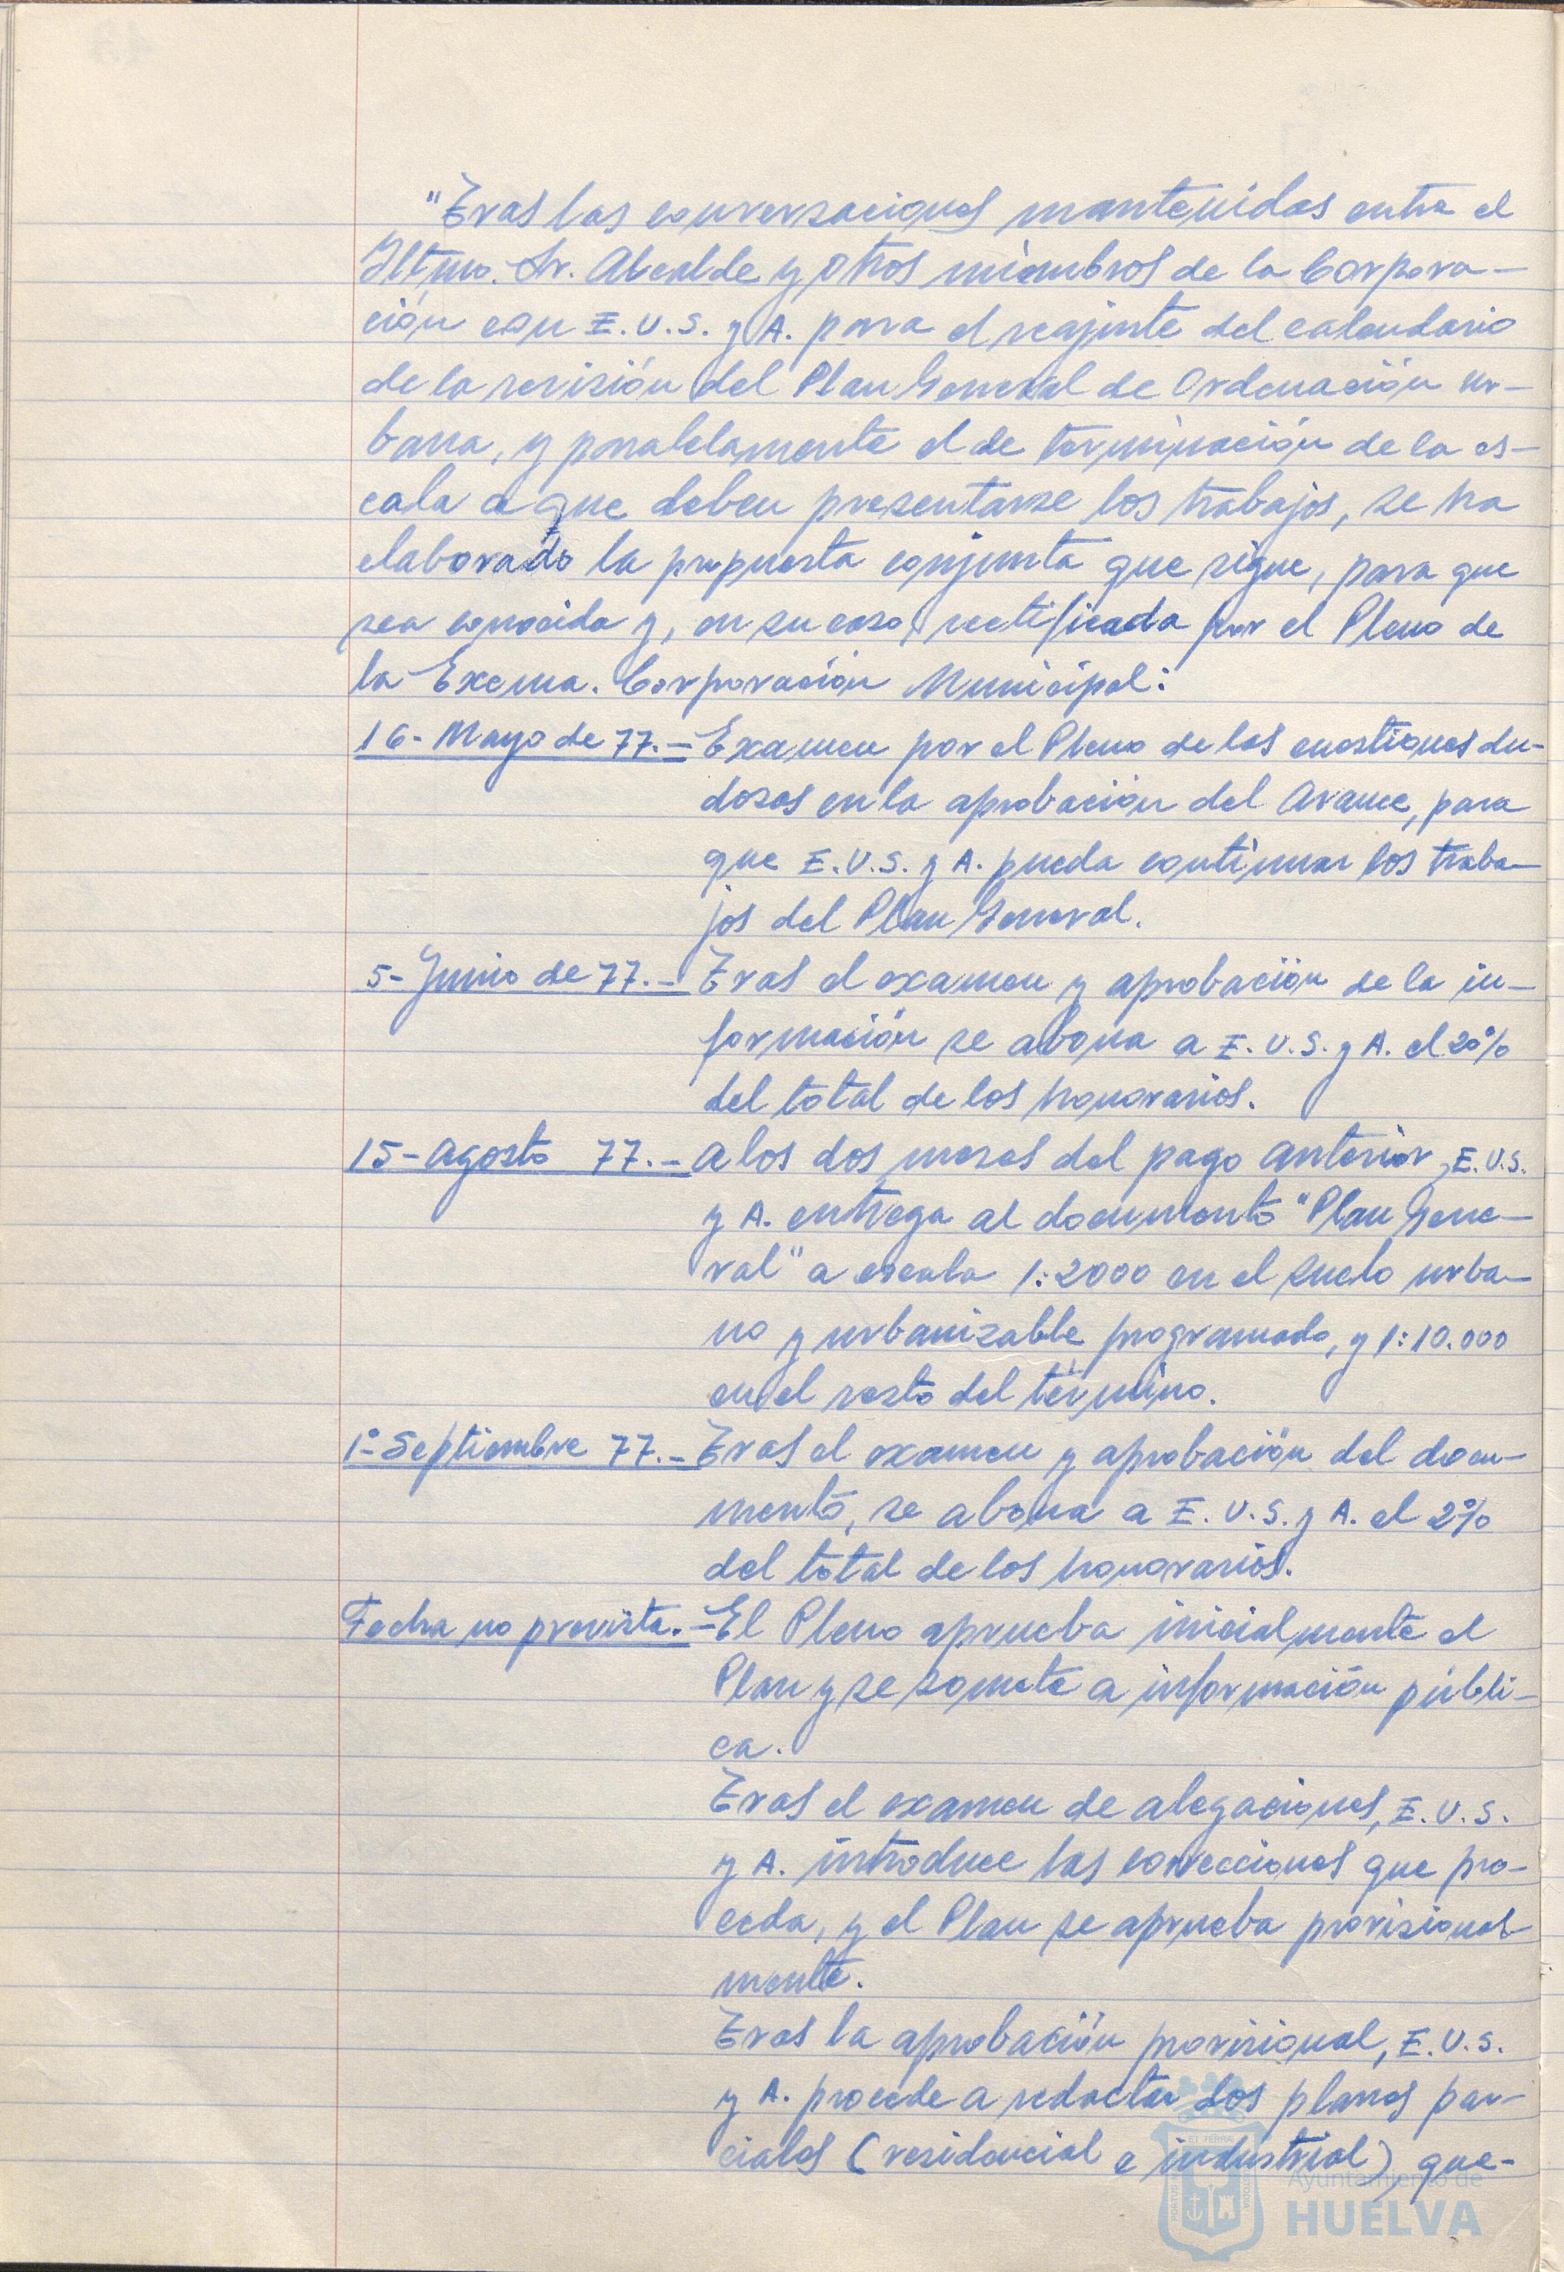 "Tras las conversaciones mantenidas entre el
Iltmo. Sr. Alcalde y otros miembros de la Corpora-
ción con E.U.S. y A. para el reajuste del calendario
de la revisión del Plan General de Ordenación Ur-
bana, y paralelamente el de terminación de la es-
cala a que deben presentarse los trabajos, se ha
elaborado la propuesta conjunta que sigue, para que
sea conocida y, en su caso, rectificada por el Pleno de
la Excma. Corporación Municipal:
16- Mayo de 77.- Examen por el Pleno de las cuestiones du-
dosas en la aprobación del Avance, para
que E.U.S. y A. pueda continuar los traba-
jos del Plan General.
5- Junio de 77.- Tras el examen y aprobación de la in-
formación se abona a E.U.S. y A. el 20%
del total de los honorarios.
15- Agosto 77.- A los dos meses del pago anterior, E.U.S.
y A. entrega al documento "Plan Gene-
ral" a escala 1:2000 en el suelo urba-
no y urbanizable programado, y 1:10.000
en el resto del término.
1º- Septiembre 77.- Tras el examen y aprobación del docu-
mento, se abona a E.U.S. y A. el 2%
del total de los honorarios.
Fecha no prevista.- El Pleno aprueba inicialmente el
Plan y se somete a información públi-
ca.
Tras el examen de alegaciones, E.U.S.
y A. introduce las correcciones que pro-
ceda, y el Plan se aprueba provisional-
mente.
Tras la aprobación provisional, E.U.S.
y A. procede a redactar dos planes par-
ciales (residencial e industrial) que-
Ayuntamiento de
HUELVA